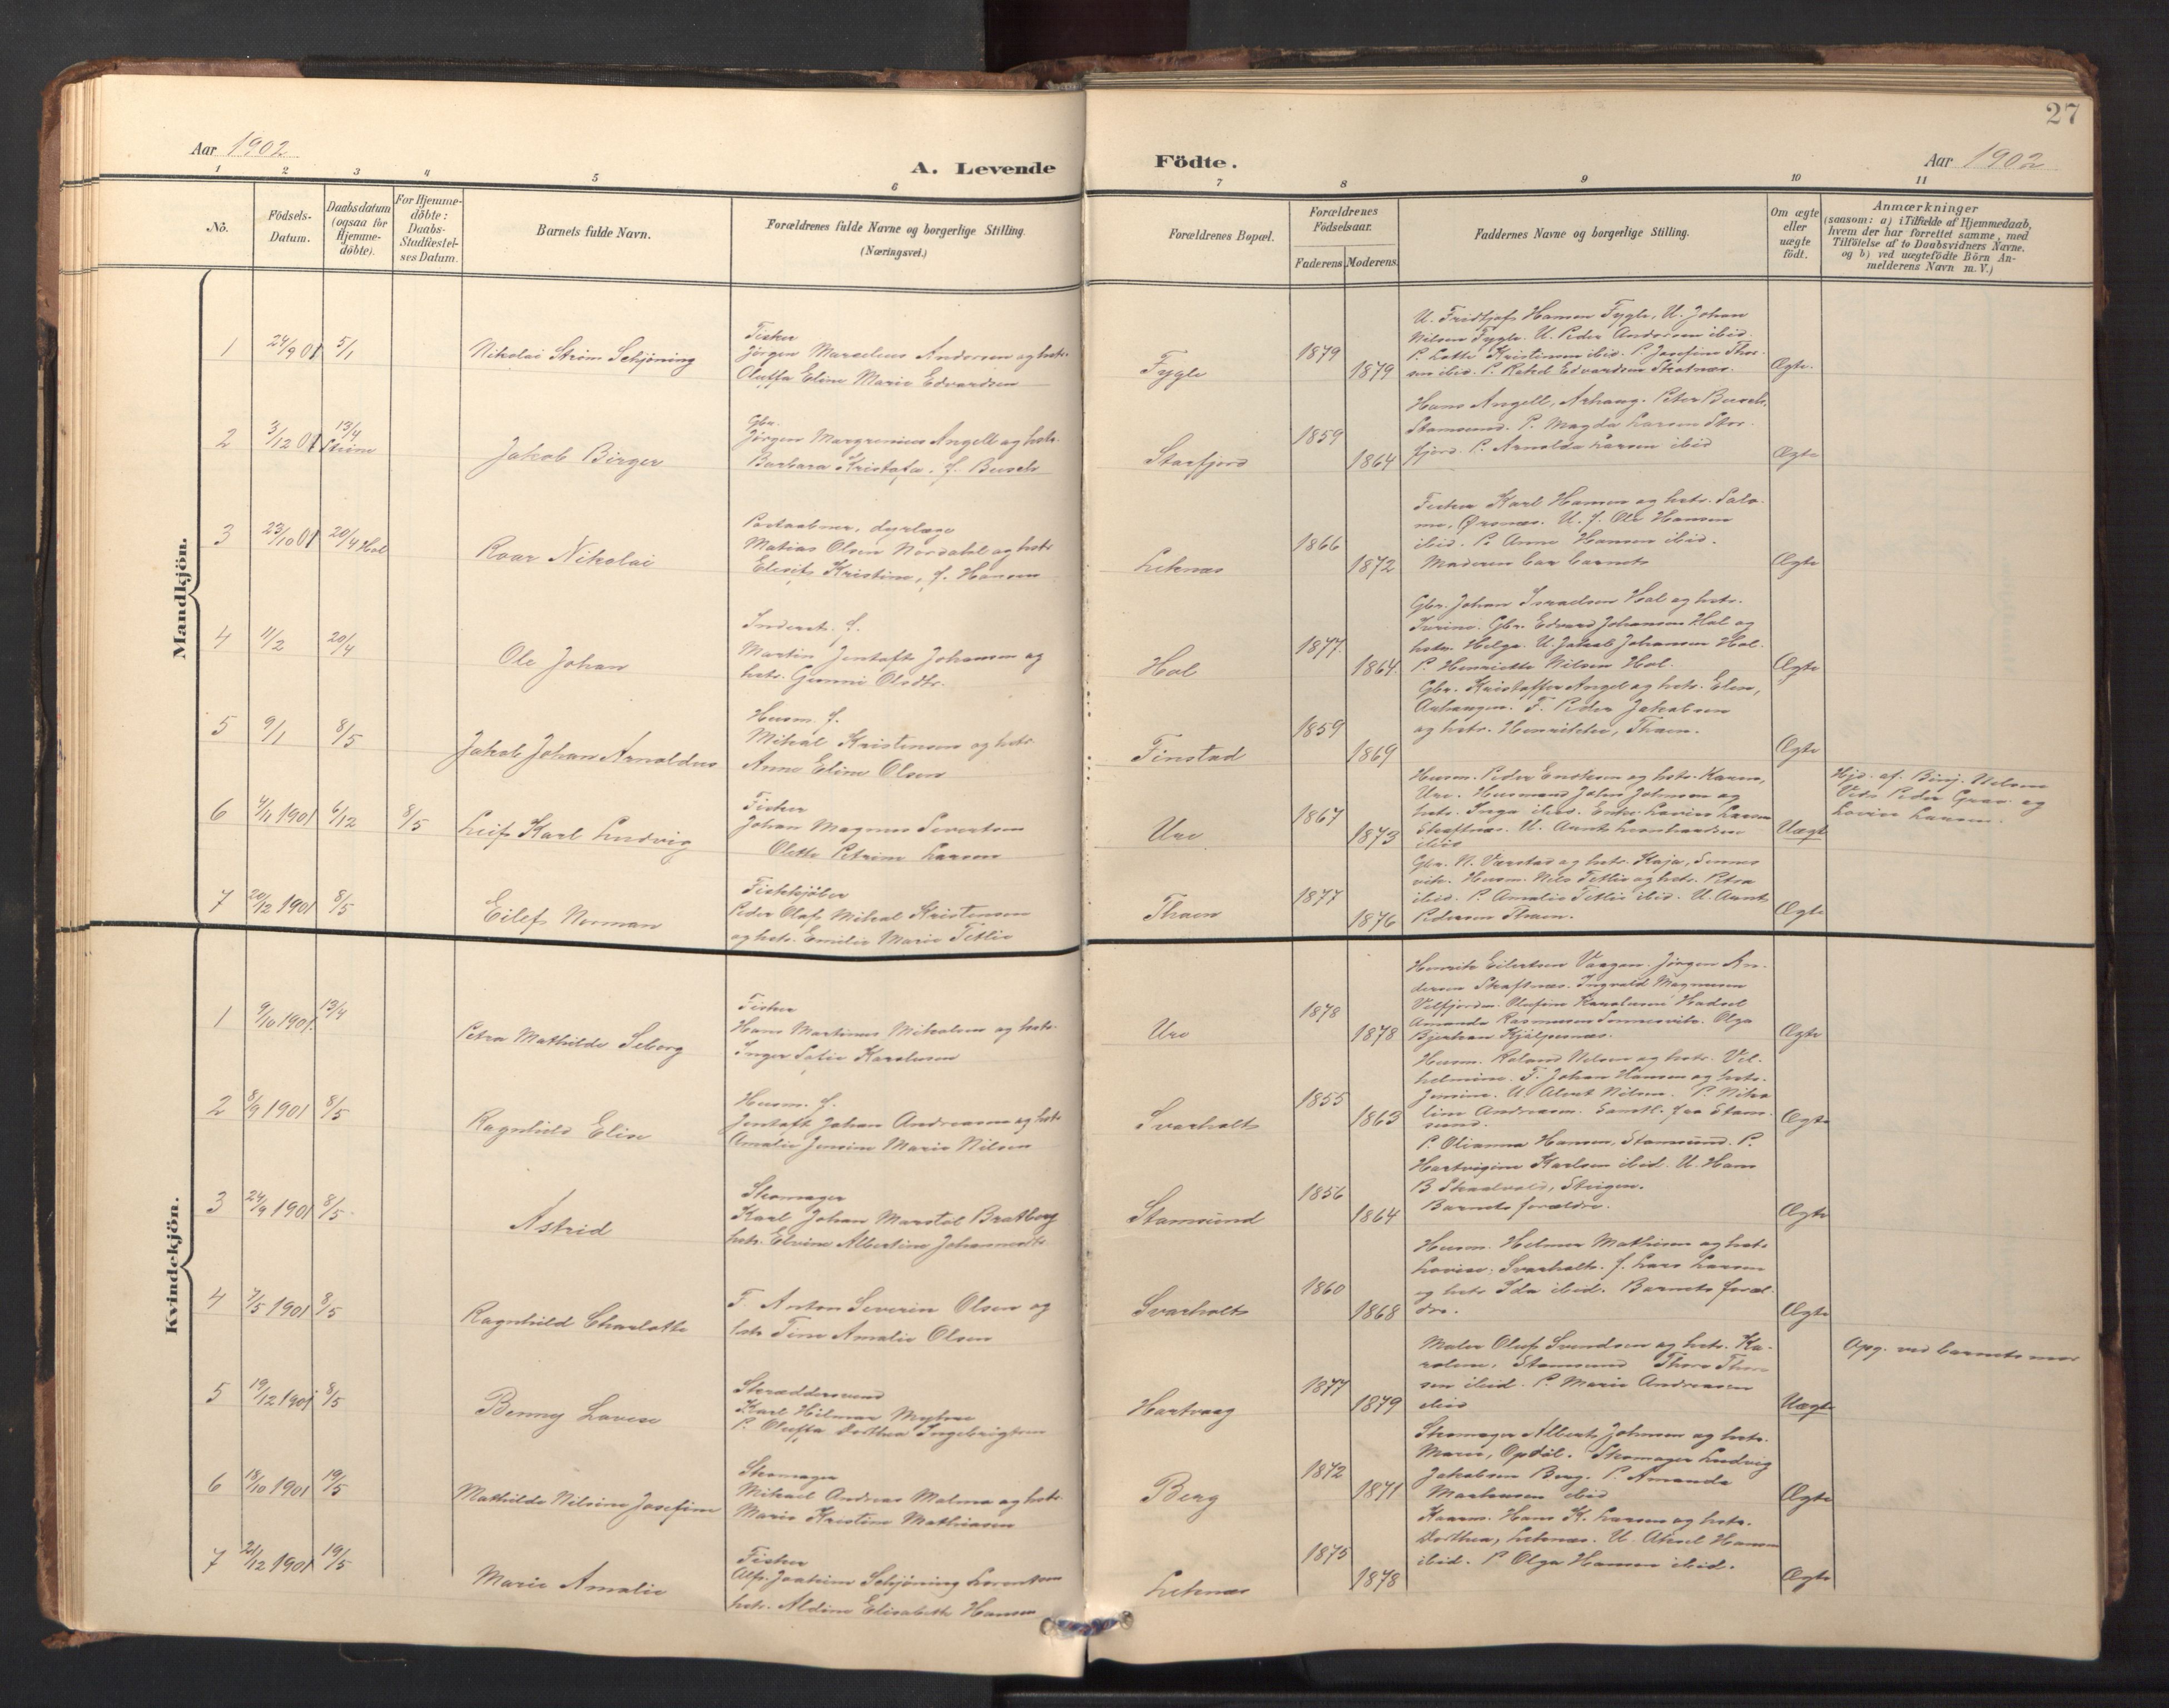 27
Aar 1902
A. Levende
Födte.
Aar 1902
1 2 3 4 5 6 7 8 9 10 11
No.
Födsels-
Datum.
Daabsdatum
(ogsaa for
Hjemme-
döbte).
For Hjemme-
döbte:
Daabs-
Stadfæstel-
ses Datum.
Barnets fulde Navn.
Forældrenes fulde Navne og borgerlige Stilling.
(Næringsvei.)
Forældrenes Bopæl.
Forældrenes
Födselsaar.
Faderens. Moderens.
Faddernes Navne og borgerlige Stilling.
Om ægte
eller
uægte
födt.
Anmærkninger
(saasom: a) i Tilfælde af Hjemmedaab,
hvem der har forrettet samme, med
Tilföielse af to Daabsvidners Navne.
og b) ved uægtefödte Börn An-
melderens Navn m. V.)
Mandkjön.
1 24/9 01 5/1
Nikolai Strøm Schjøning
Fisker
Jørgen Marselius Andersen og hstr.
Oluffa Eline Marie Edvardsen
Fygle
1879
1879
U. Fridtjof Hansen Fygle, U. Johan
Nilsen Fygle. U. Peder Andersen ibid.
P. Lotte Kristensen ibid. P. Josefine Thor-
sen ibid. P. Rakel Edvardsen Skotnæs.
Ægte.
2 3/12 01 13/4
Jakob Birger
Gbr.
Jørgen Margrenius Angell og hstr.
Barbara Kristofa, f. Busch
Storfjord
1859
1864
Hans Angell, Arhaug. Peter Busch,
Stamsund. P. Magda Larsen Stor-
fjord. P. Arnolda Larsen ibid
Ægte
3 23/10 01 20/4 Hol
Roar Nikolai
Postaabner, dyrlæge
Matias Olsen Nordahl og hstr
Kristine, f. Hansen
Leknæs
1866
1872
Fisker Karl Hansen og hstr. Salo-
me, Ørsnæs. U. f. Ole Hansen
ibid. P. Anne Hansen ibid.
Moderen bar barnet
Ægte
4 11/2 20/4
Ole Johan
Inderst. f.
Martin Jentoft Johansen og
hstr. Gunni Olsdtr.
Hol
1877.
1864.
Gbr. Johan Israelsen Hol og hstr.
Gbr. Edvard Johansen Hol og
hstr. Helga. U. Jakob Johansen Hol.
P. Henriette Nilsen Hol.
Ægte
5 9/1 8/5
Jakob Johan Arnoldus
Husm. f.
Mikal Kristensen og hstr
Anne Eline Olsen
Finstad
1859
1869
Gbr. Kristoffer Angel og hstr. Elen,
Arhaugen. F. Peder Jakobsen
og hstr. Thoen.
Ægte
6 4/11 1901 6/12 8/5
Leif Karl Ludvig
Fisker
Johan Magnus Sivertsen
Olette Petrine Larsen
Ure
1867
1873
Husm. Peder og hstr. Karen,
Ure. Husmand John Johnsen og
hstr. Inga ibid. Enke Lovise Larsen
Skaftnæs. U. Leonhardsen
ibid
Uægt
Hjd. af. Binj. Nilsen
Vidn Peder Grav. og
Lovise Larsen.
7 20/12 1901 8/5
Eilef Norman
Fiskekjøber
Peder Olaf Mikal Kristensen
og hstr. Emilie Marie Tetlie
Thoen
1877
1876
Gbr. N. Værstad og hstr. Kaja, Sennes-
vik. Husm. Nils Tetlie og hstr. Petra
ibid. P. Amalie Tetlie ibid. U. Arnt
Pedersen Thoen.
Ægte
Kvindekjön.
1 9/10 1901. 13/4
Petra Mathilde Seborg
Fisker
Hans Martinus Mikalsen og hstr.
Inger Sofie Karolusen
Ure
1878
1878
Henrik Eilertsen Vaagen. Jørgen An-
dersen Skaftnæs. Ingvald Magnusen
Velfjorden. Olufine Karolusen Hadsel
Amanda Rasmussen Sennesvik. Olga
Ægte
2 8/9 1901 8/5
Ragnhild Elise
Husm. f.
Jentoft Johan Andreassen og hstr
Amalie Jensine Marie Nilsen
Svarholt
1855
1863
Husm. Roland Nilsen og hstr. Vil-
helmine. F. Johan Hansen og hstr.
Jensine. U. Alvat Nilsen. P. Niko-
line Andreasen. Samtl. fra Stam-
sund.
Ægte
3 24/9 1901 8/5
Astrid
Skomager
Karl Johan Marstal Bratberg
hstr. Elvine Albertine
Stamsund
1856
1864
P. Olianna Hansen, Stamsund. P.
Hartvigine Karlsen ibid. U. Hans
B
Barnets forældre.
Ægte
4 7/5 1901 8/5
Ragnhild Charlotte
F. Anton Severin Olsen og
hstr Tine Amalie Olsen
Svarholt
1860
1868
Husm. Helmer Mathisen og hstr
Lovise, Svarholt. f. Lars Larsen
og hstr Ida ibid. Barnets foræl-
dre.
Ægte
5 19/12 1901 8/5
Benny Lovise
Skræddersvend
Karl Hilmar Myhre
P. Oluffa Dorthea Ingebrigtsen
Hartvaag
1877
1879
Maler Oluf Svendsen og hstr. Ka-
roline, Stamsund Thora Thor-
sen ibid. P. Marie Andreasen
ibid
Uægte
Opg. ved barnets mor
6 18/10 1901 19/5
Mathilde Nilsine Josefine
Skomager
Mikael Andreas Malma og hstr.
Marie Kristine Mathiasen
Berg
1872
1871
Skomager Albert Johnsen og hstr.
Marie, Opdøl. Skomager Ludvig
Jakobsen Berg. P. Amanda
ibid
Ægte
7 21/12 1901 19/5
Marie Amalie
Fisker
Alf. Joakim Schjøning Lorentsen
hstr. Aldine Elisabeth Hansen
Leknæs
1875
1878
Kaarm. Hans K. Larsen og hstr.
Dorthea, Leknæs. U. Aksel Hansen
ibid. P. Olga Hansen ibid.
Ægte